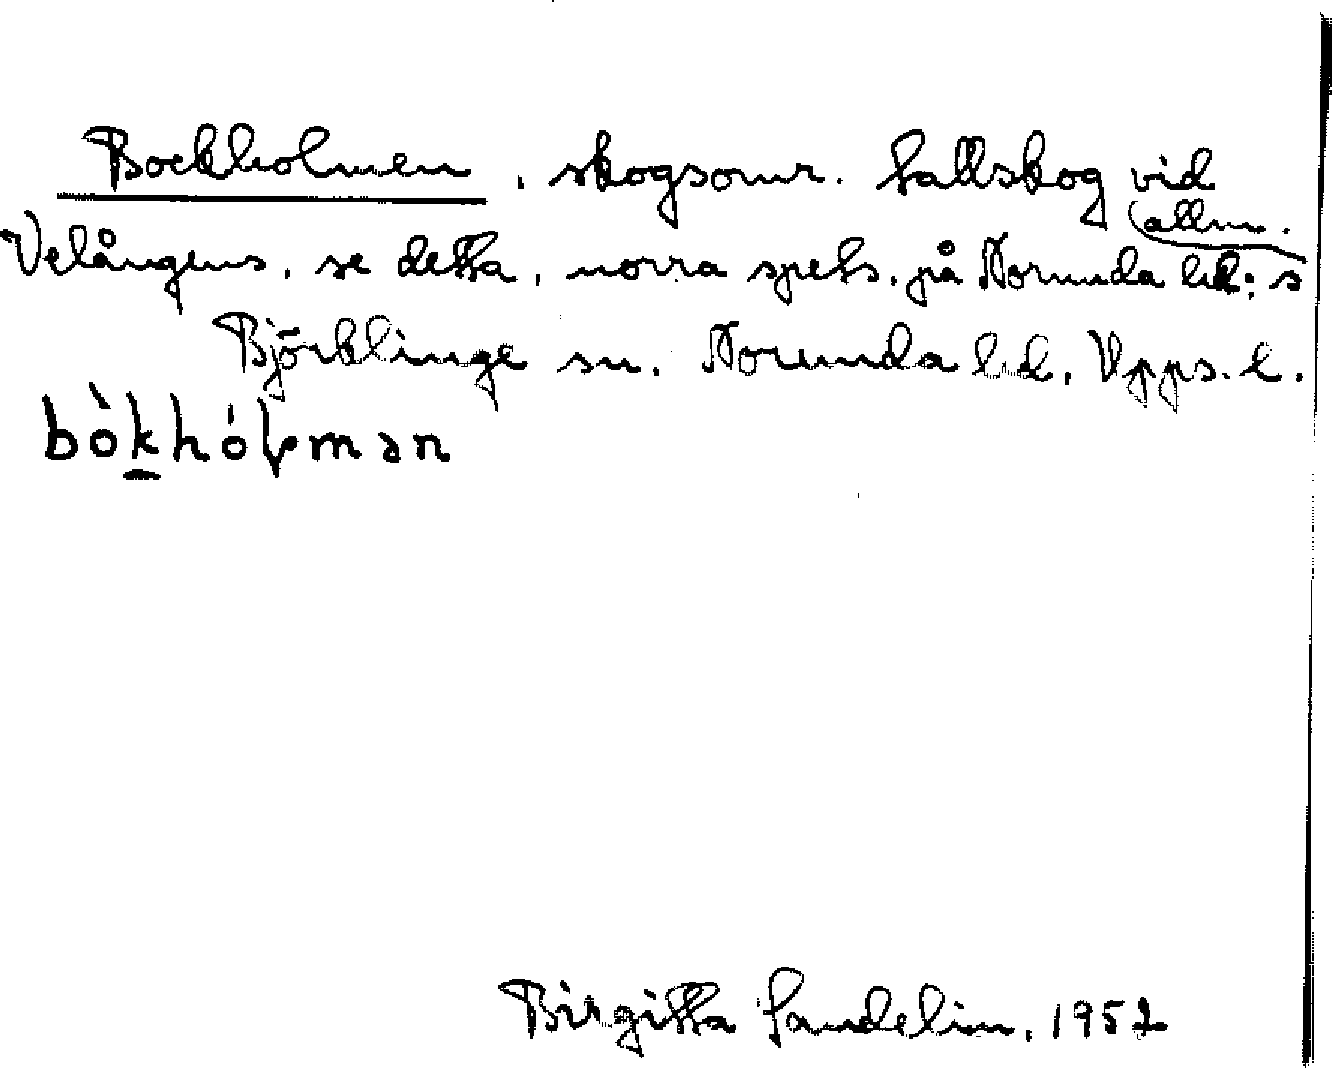 Bockholmen, skogsomr. Tallskog vid
Velångens, se detta, norra spets, på Norunda hd:s allm.
Björklinge sn. Norunda hd. Upps. l.
bòkhólman
Birgitta Sandelin, 1952